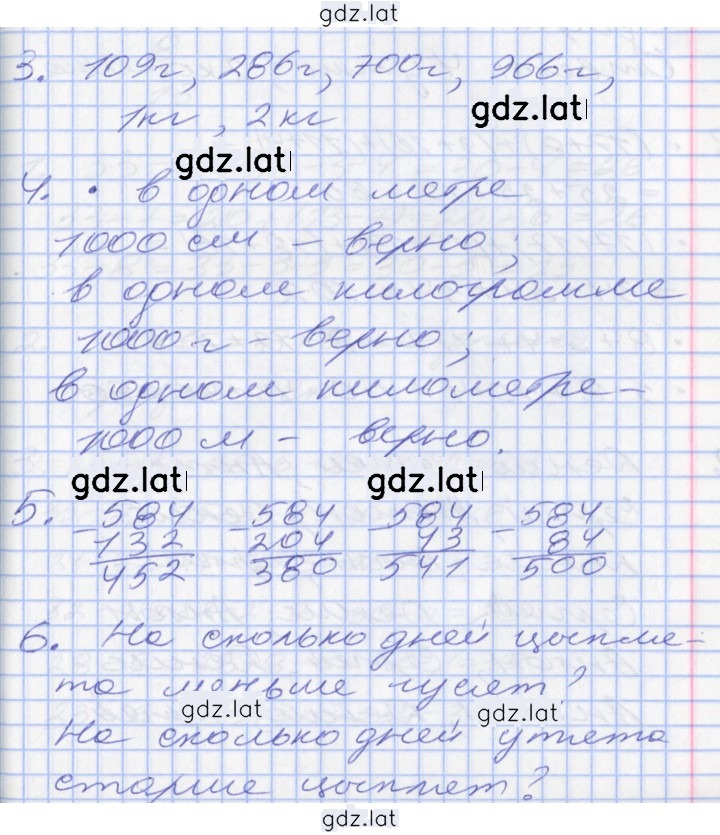 gdz.lat
3. 109г, 286г, 700г, 966г,
gdz.lat
1кг, 2кг
gdz.lat
4. • в одном метре
1000 см - верно;
в одном килограмме
1000г - верно;
в одном километре -
1000 м - верно.
gdz.lat gdz.lat
5. -584 -584 -584 -584
132 204 43 84
452 380 541 500
6. На сколько дней цыпле-
та меньше гусят?
gdz.lat gdz.lat
На сколько дней утята
старше цыплят?
gdz.lat